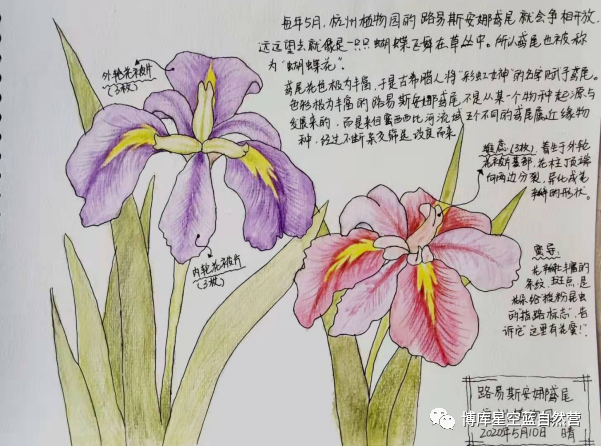 每年5月,杭州植物园的路易斯安娜鸢尾就会争相开放,
远远望去就像是一只只蝴蝶飞舞在草丛中。所以鸢尾也被称
为“蝴蝶花”。
鸢尾花色极为丰富,于是古希腊人将“彩虹女神”的名字赋予鸢尾。
色彩极为丰富的路易斯安娜鸢尾不是从某一个物种起源与
发展来的,而是来自密西西比河流域五个不同的鸢尾属近缘物
种,经过不断杂交
改良而来
外轮花被片
(3枚)
内轮花被片
(3枚)
雌蕊(3枚),着生于外轮
花被片基部,花柱顶端
向两边分裂,异化成花
瓣的形状。
蜜导:
花瓣上丰富的
条纹、斑点,是
给授粉昆虫
的指路标志,告
诉它“这里有花蜜!”
路易斯安娜鸢尾
2020年5月10日 晴
博库星空蓝自然营